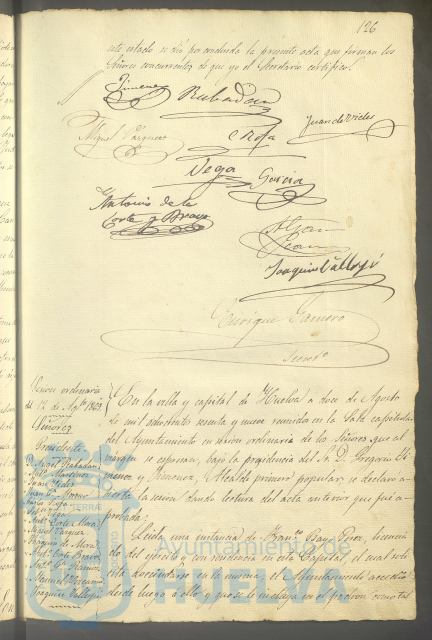 126
este estado se dió por concluida la presente acta que firman los
Señores concurrentes de que yo el Secretario certifico.
Jimenez
Rubadan
Miguel Vazquez
Mora
Juan de Vides
Vega
Garcia
Antonio de la
Corte y Bravo
Joaquin Vallejo
Enrique Gamero
Secreto
Sesion ordinaria
del 12 de Agto 1869.
Señores
Presidente
Martinez
Juan Vides
Juan Moreno
Vega
Corte Mora
Miguel Vazquez
de Mora
Corte Bravo
Manuel
Joaquin Vallejo
En la villa y capital de Huelva a doce de Agosto
de mil ochocientos sesenta y nueve reunidos en la Sala capitular
del Ayuntamiento en sesion ordinaria los Señores que al
margen se espresan, bajo la presidencia del Sr. D. Gregorio Ji-
menez y Jimenez, Alcalde primero popular, se declaró a-
bierta la sesion dando lectura del acta anterior que fué a-
probada:
Leida una instancia de Franco Perez, licencia
do del ejército, con residencia en esta Capital, el cual soli-
cita avecindarse en la misma, el Ayuntamiento accedió
desde luego á ello y que se le incluya en el padron
TERRÆ
Ayuntamiento de
HUELVA